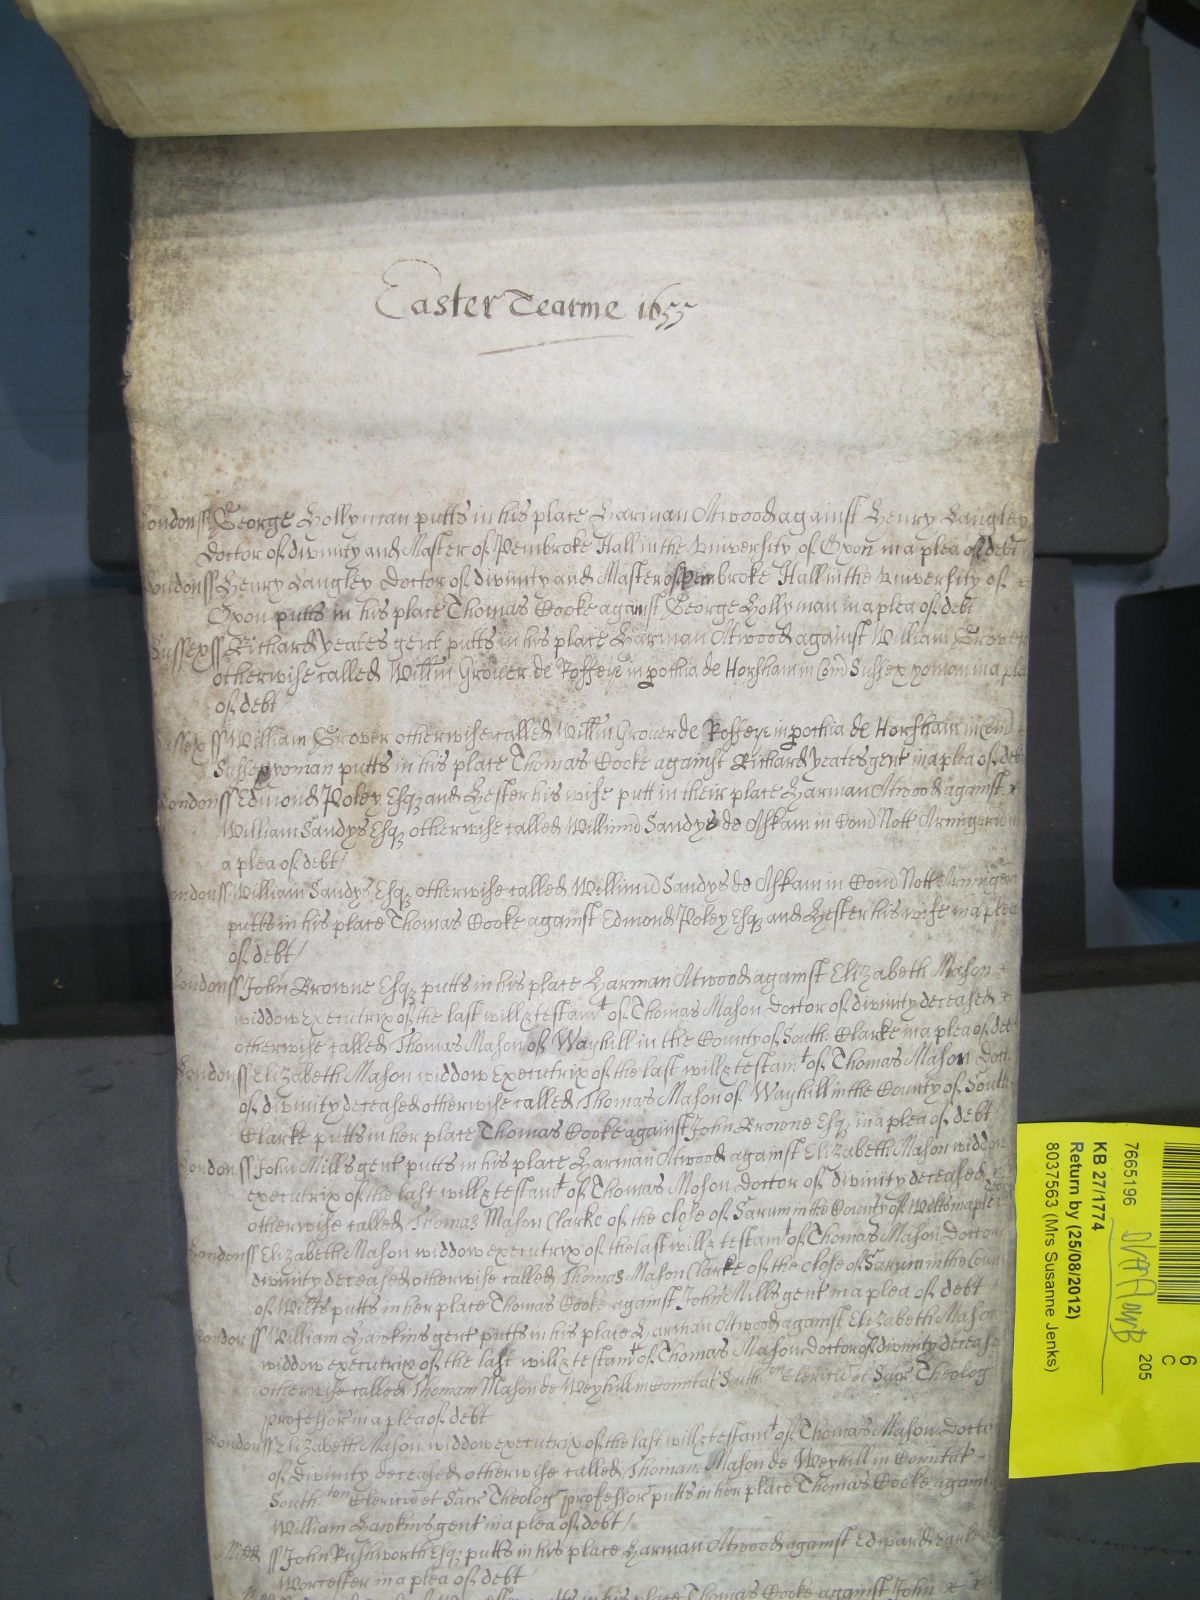 Easter Tearme 1655
London ss George Hollyman putts in his place Harman Atwood against Henry Langley
Doctor of divinity and Master of Pembroke Hall in the Vniversity of Oxon in a plea of debt
London ss Henry Langley Doctor of divinity and Master of Pembroke Hall in the Vniversity of
Oxon putts in his place Thomas Cooke against George Hollyman in a plea of debt
Sussex ss Richard Yeates gent putts in his place Harman Atwood against William Grover
otherwise called Willm Grover de Roffeye in pochia de Horsham in Com Sussex yoman in a plea
of debt
Sussex ss William Grover otherwise called Willm Grover de Roffeye in pochia de Horsham in Com
Sussex yoman putts in his place Thomas Cooke against Richard Yeates gent in a plea of debt
London ss Edmond Poley Esqz and Hester his wife putt in their place Harman Atwood against
William Sandys Esqz otherwise called Willimu Sandys de Askam in Com Nott Armigeru in
a plea of debt
London ss William Sandys Esqz otherwise called Willimu Sandys de Askam in Com Nott Armigeru
putts in his place Thomas Cooke against Edmond Poley Esqz and Hester his wife in a plea
of debt
London ss John Browne Esqz putts in his place Harman Atwood against Elizabeth Mason
widdow executrix of the last will & testamt of Thomas Mason Doctor of divinity deceased
otherwise called Thomas Mason of Wayhill in the County of South Clarke in a plea of debt
London ss Elizabeth Mason widdow Executrix of the last will & testamt of Thomas Mason Doct
of divinity deceased otherwise called Thomas Mason of Wayhill in the County of South
Clarke putts in her place Thomas Cooke against John Browne Esqz in a plea of debt
London ss John Mills gent putts in his place Harman Atwood against Elizabeth Mason widdow
executrix of the last will & testamt of Thomas Mason Doctor of divinity deceased
otherwise called Thomas Mason Clarke of the close of Sarum in the County of Wilts in a plea
London ss Elizabeth Mason widdow executrix of the last will & testamt of Thomas Mason Doctor
divinity deceased otherwise called Thomas Mason Clarke of the close of Sarum in the Coun
of Wilts putts in her place Thomas Cooke against John Mills gent in a plea of debt
London ss William Hawkins gent putts in his place Harman Atwood against Elizabeth Mason
widdow executrix of the last will & testamt of Thomas Mason Doctor of divinity deceased
otherwise called Thomam Mason de Weyhill in Comitat South ton Clericu et Sacr Theolog
professor in a plea of debt
London ss Elizabeth Mason widdow executrix of the last will & testamt of Thomas Mason Doctor
of divinity deceased otherwise called Thomam Mason de Weyhill in Comitat
South ton Clericu et Sacr Theolog professor putts in her place Thomas Cooke against
William Hawkins gent in a plea of debt
Midd ss John Rushworth Esqz putts in his place Harman Atwood against Edward
Worcester in a plea of debt
putts in his place Thomas Cooke against John
7665196
KB 27/1774
Return by (25/08/2012)
8037563 (Mrs Susanne Jenks)
205
6
C